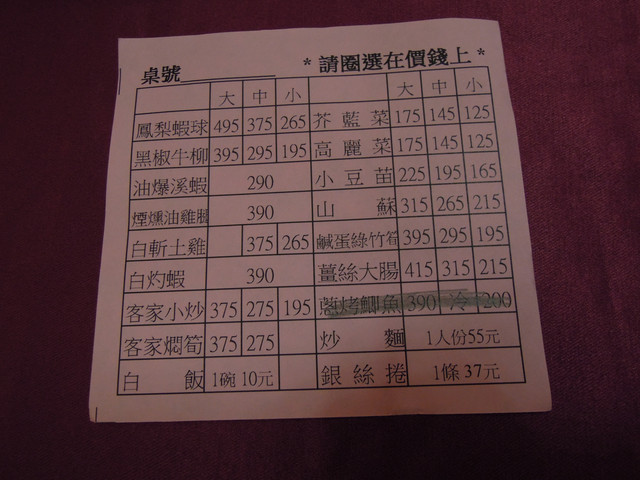 桌號 * 請圈選在價錢上 *
大 中 小 大 中 小
鳳梨蝦球 495 375 265 芥藍菜 175 145 125
黑椒牛柳 395 295 195 高麗菜 175 145 125
油爆溪蝦 290 小豆苗 225 195 165
煙燻油雞腿 390 山蘇 315 265 215
白斬土雞 375 265 鹹蛋綠竹筍 395 295 195
白灼蝦 390 薑絲大腸 415 315 215
客家小炒 375 275 195 蔥烤鯽魚 390 冷 200
客家燜筍 375 275 炒麵 1人份55元
白飯 1碗 10元 銀絲捲 1條 37元